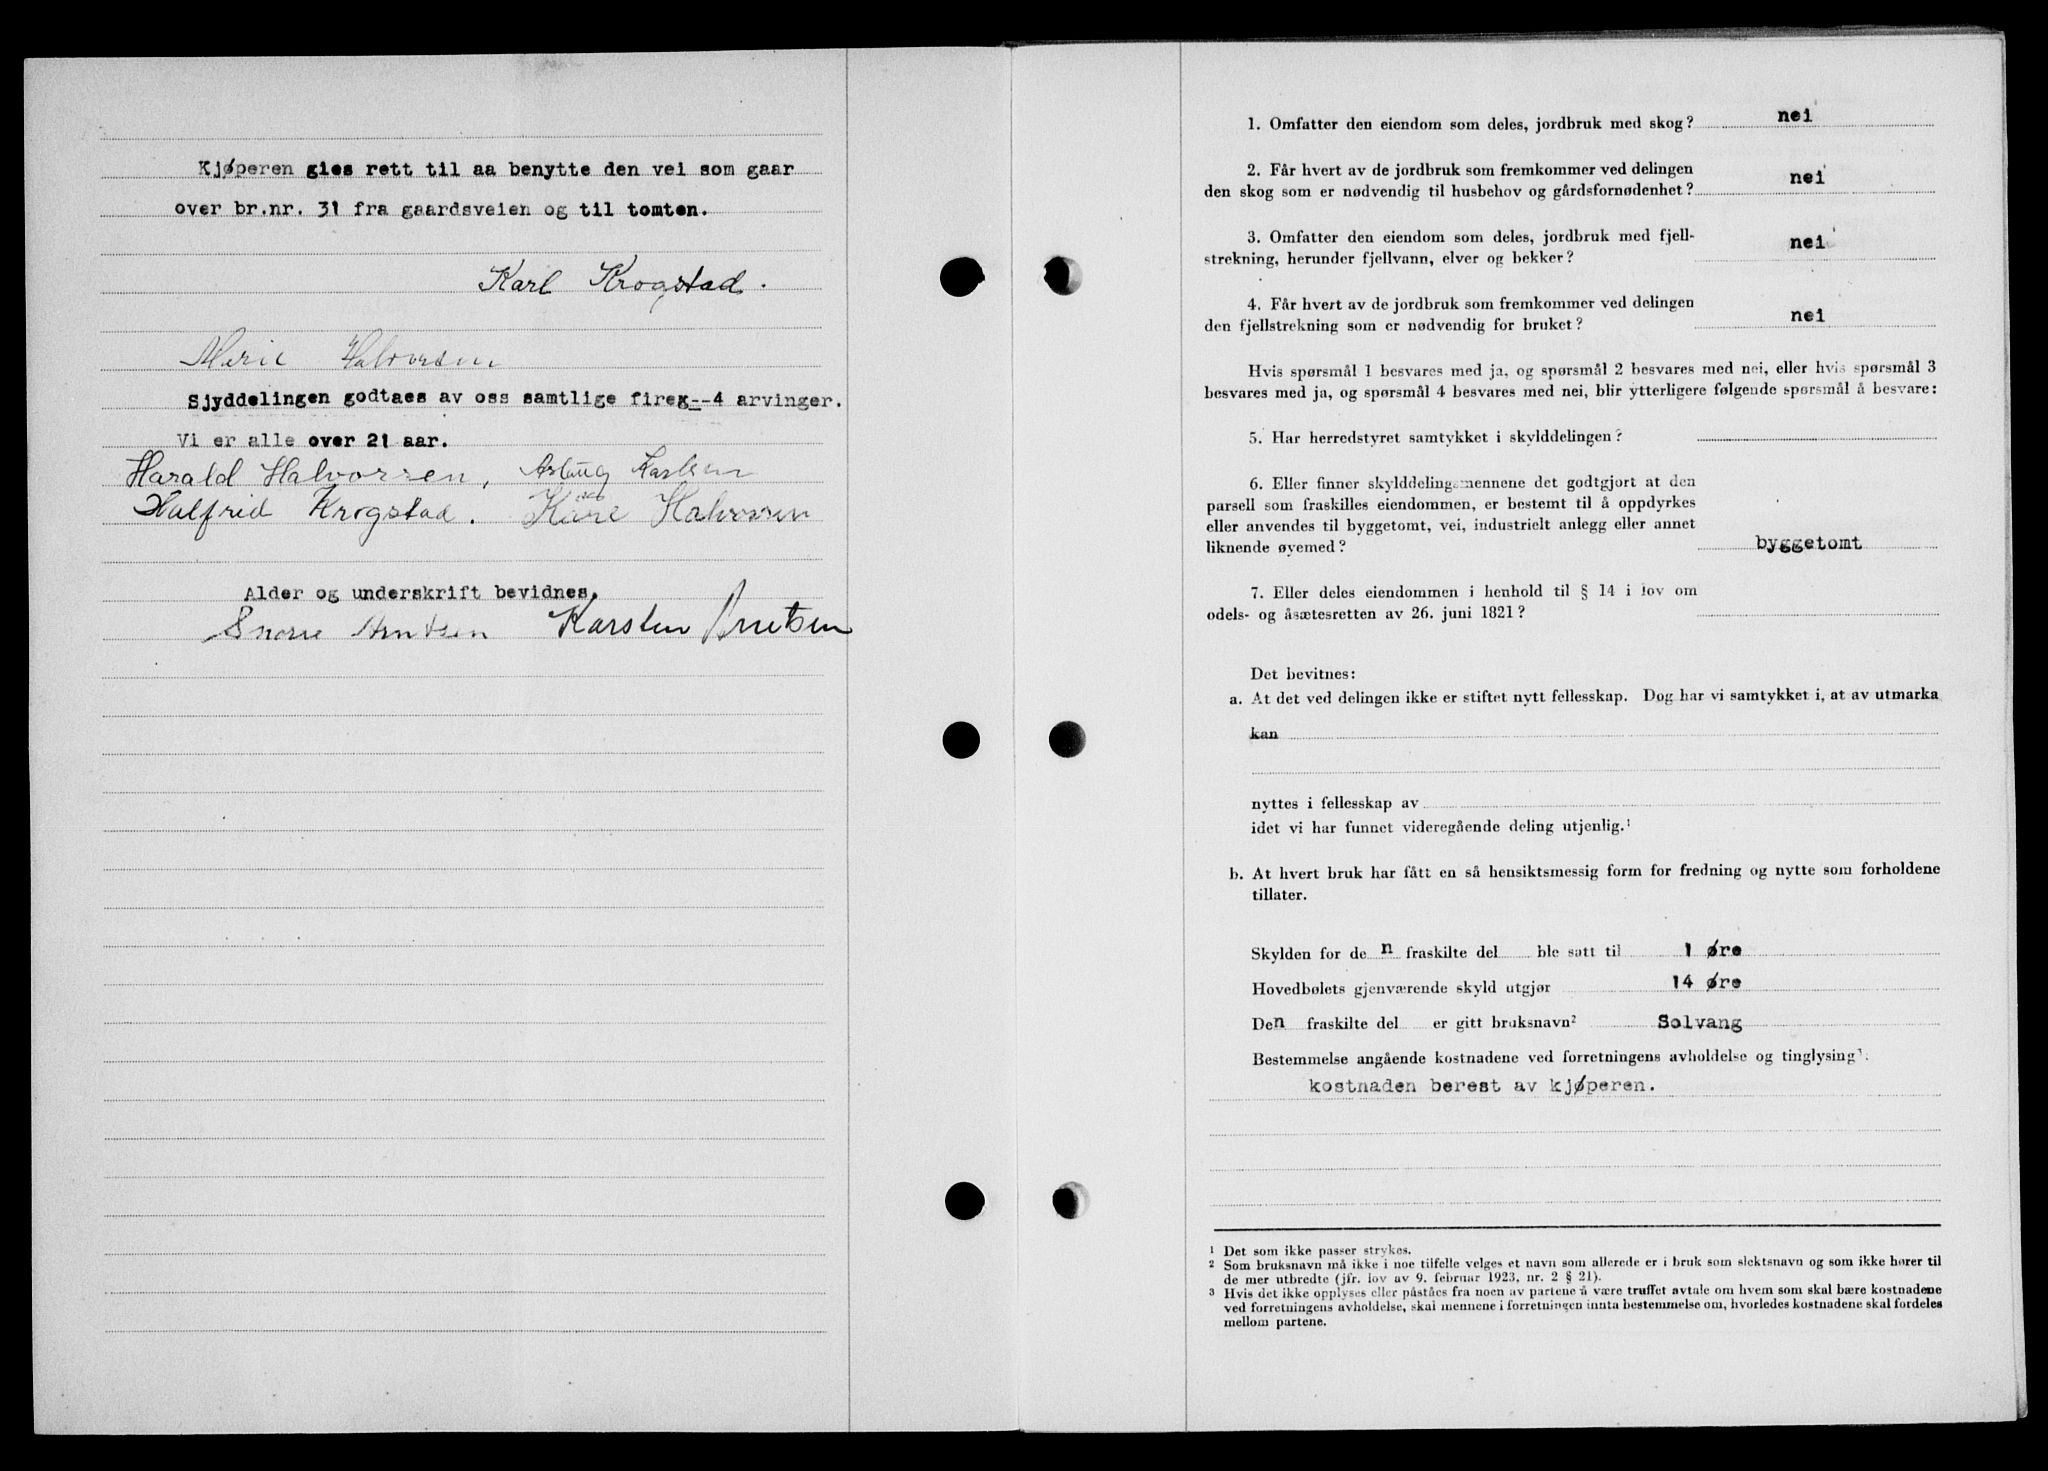 Kjøperen gies rett til aa benytte den vei som gaar
over br.nr. 31 fra gaardsveien og til tomten.
Karl Krogstad.
Marie Halvorsen
Sjyddelingen godtaes av oss samtlige fireg--4 arvinger.
Vi er alle over 21 aar.
Harald Halvorsen, Aslaug Karlsen
Halfrid Krogstad. Kåre Halvorsen
Alder og underskrift bevidnes.
Snorre Arntsen Karsten Arntsen
1. Omfatter den eiendom som deles, jordbruk med skog? nei
2. Får hvert av de jordbruk som fremkommer ved delingen
den skog som er nødvendig til husbehov og gårdsfornødenhet? nei
3. Omfatter den eiendom som deles, jordbruk med fjell-
strekning, herunder fjellvann, elver og bekker? nei
4. Får hvert av de jordbruk som fremkommer ved delingen
den fjellstrekning som er nødvendig for bruket? nei
Hvis spørsmål 1 besvares med ja, og spørsmål 2 besvares med nei, eller hvis spørsmål 3
besvares med ja, og spørsmål 4 besvares med nei, blir ytterligere følgende spørsmål å besvare:
5. Har herredstyret samtykket i skylddelingen?
6. Eller finner skylddelingsmennene det godtgjort at den
parsell som fraskilles eiendommen, er bestemt til å oppdyrkes
eller anvendes til byggetomt, vei, industrielt anlegg eller annet
liknende øyemed? byggetomt
7. Eller deles eiendommen i henhold til § 14 i lov om
odels- og åsætesretten av 26. juni 1821?
Det bevitnes:
a. At det ved delingen ikke er stiftet nytt fellesskap. Dog har vi samtykket i, at av utmarka
kan
nyttes i fellesskap av
idet vi har funnet videregående deling utjenlig.¹
b. At hvert bruk har fått en så hensiktsmessig form for fredning og nytte som forholdene
tillater.
Skylden for de n fraskilte del ble satt til 1 øre
Hovedbølets gjenværende skyld utgjør 14 øre
Den fraskilte del er gitt bruksnavn² Solvang
Bestemmelse angående kostnadene ved forretningens avholdelse og tinglysing³:
kostnaden berest av kjøperen.
¹ Det som ikke passer strykes.
² Som bruksnavn må ikke i noe tilfelle velges et navn som allerede er i bruk som slektsnavn og som ikke hører til
de mer utbredte (jfr. lov av 9. februar 1923, nr. 2 § 21).
³ Hvis det ikke opplyses eller påståes fra noen av partene å være truffet avtale om hvem som skal bære kostnadene
ved forretningens avholdelse, skal mennene i forretningen innta bestemmelse om, hvorledes kostnadene skal fordeles
mellom partene.